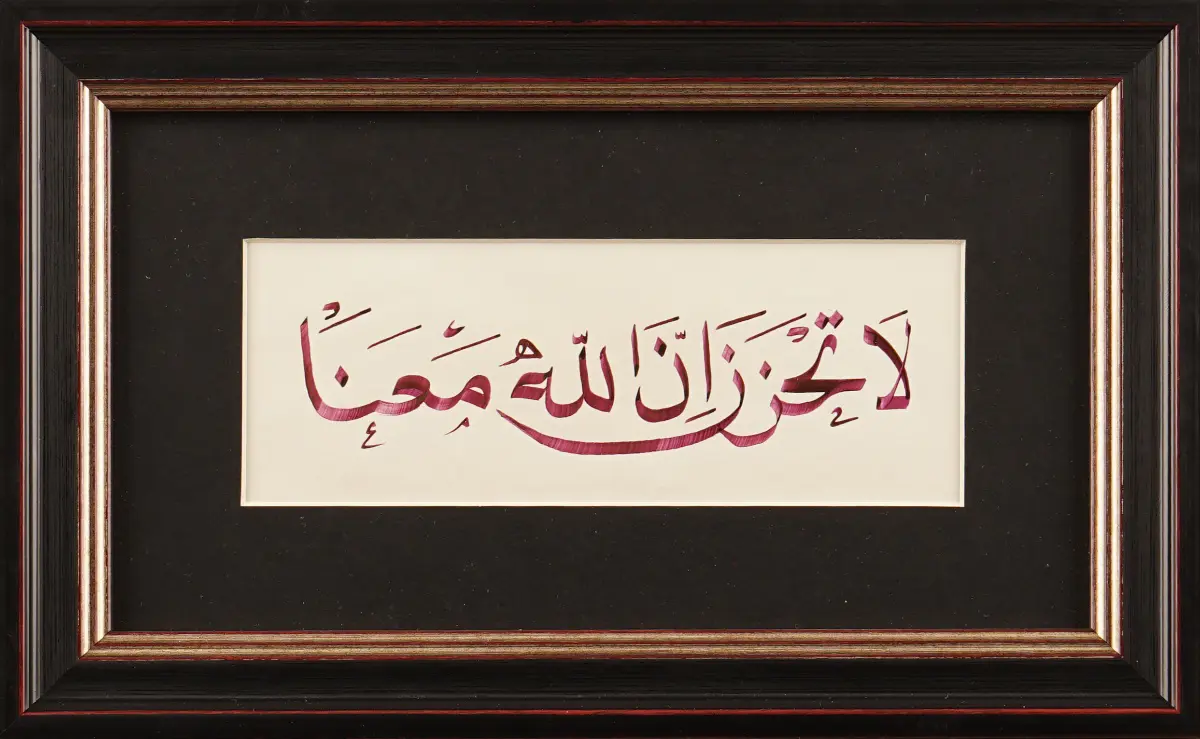 لَا تَحْزَنْ اِنَّ اللّٰهَ مَعَنَا